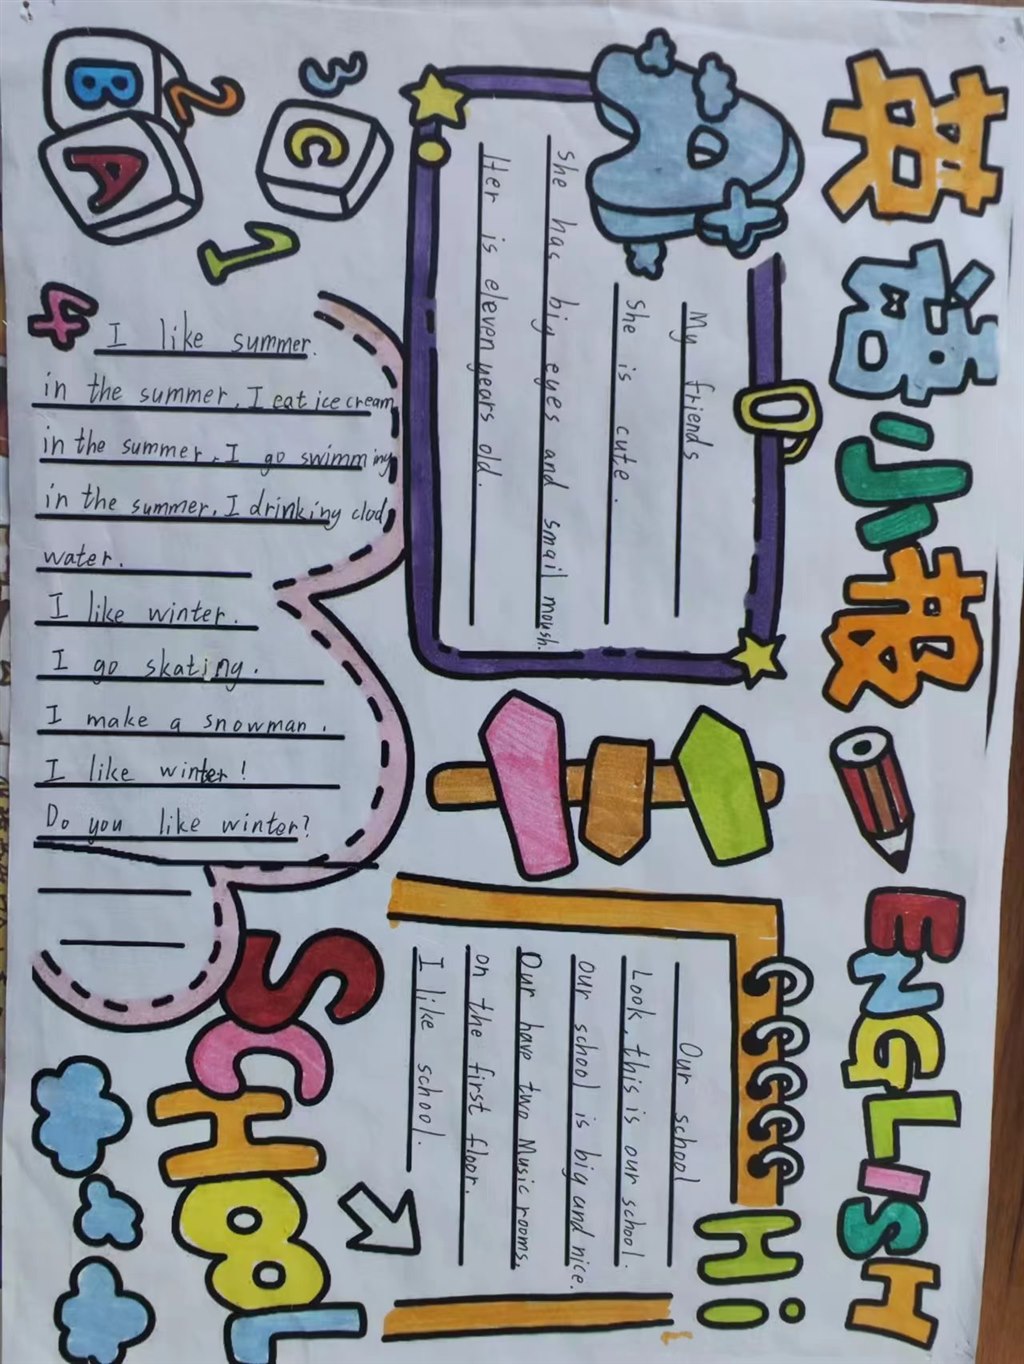 英语小报
ENGLISH
My friends
She is cute.
She has big eyes and smail moush.
Her is eleven years old.
Hi
Our school
Look, this is our school.
our school is big and nice.
Our have two Music rooms.
on the first floor.
I like school.
B
A
2
3
C
1
4
I like summer.
in the summer, I eat ice cream
in the summer, I go swimming
in the summer, I drinking clod
water.
I like winter.
I go skating.
I make a snowman.
I like winter!
Do you like winter?
SCHOOL